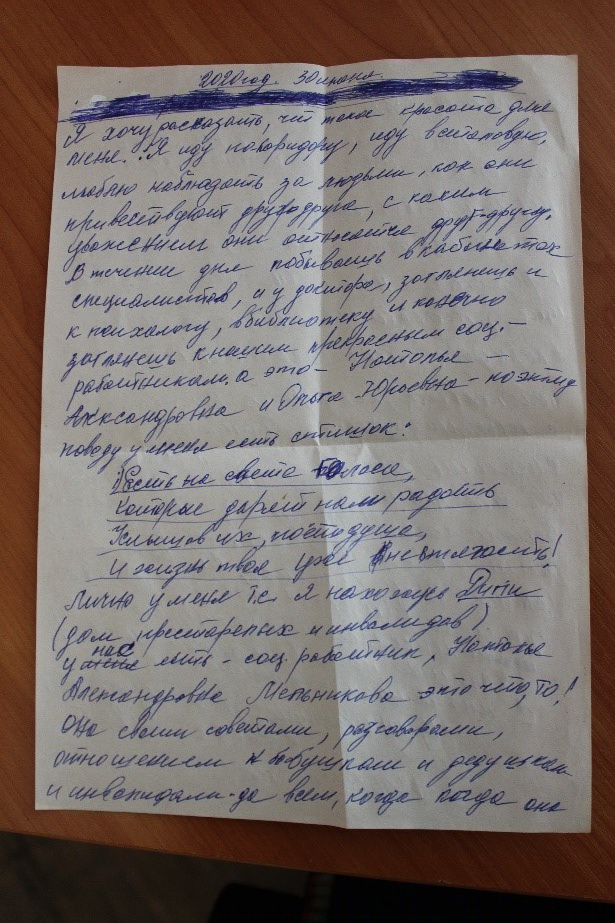 2020 год 30 июня
Я хочу рассказать, что такое красота для
меня. Я иду по коридору, иду в столовую,
люблю наблюдать за людьми, как они
приветствуют друг друга, с каким
уважением они относятся друг-другу.
В течении дня побываешь в кабинетах
специалистов, и у доктора, заглянешь и
к психологу, в библиотеку и конечно
заглянешь к нашим прекрасным соц.-
работникам, а это - Наталья -
Александровна и Ольга Юрьевна - по этому
поводу у меня есть стишок:
Есть на свете голоса,
Которые дарят нам радость
Услышав их, поёт душа,
И жизнь твоя уже не тягость!
Лично у меня т.к. я нахожусь
(дом престарелых и инвалидов)
у нас есть - соц. работник, Наталья
Александровна Мельникова это что, то!
Она своими советами, разговорами,
отношением к бабушкам и дедушкам
и инвалидам - да всем, когда она